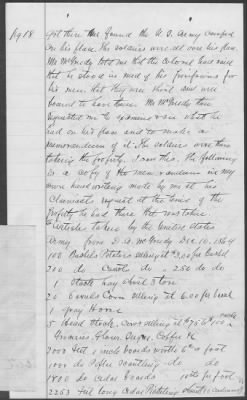 Pg 18
got there he found the U.S. Army camped
on his place. The soldiers were all over his place
Mr McGrudy told me that the Colonel had said
that he stood in need of his provisions for
his men that they were tired and were
bound to have them. Mr McGrudy then
requested me to examine and see what he
had on his place and to make a
memorandum of it. The soldiers were then
taking the property. I saw this. The following
is a copy of the memorandum in my
own handwriting made by me at his
Claimants request at the time of the
property he had there that was taken
Articles taken by the United States
Army from D. A. McGrudy Dec 10, 1864
100 Bushels Potatoes selling at $3.00 per Bushel
210 do Carrots do - 2.50 do do
1 Stack hay about 8 tons
20 Barrels Corn selling at 6.00 per bushel
1 gray Horse
5 Head Stock, Cows selling at $75 to 100 each
Groceries, Flour, Sugar, Coffee &c
2000 feet 1 inch boards worth 6 cts a foot
1000 do Poplar scantling do do
1800 do Cedar boards 10 cts per foot
2253 feet long Cedar